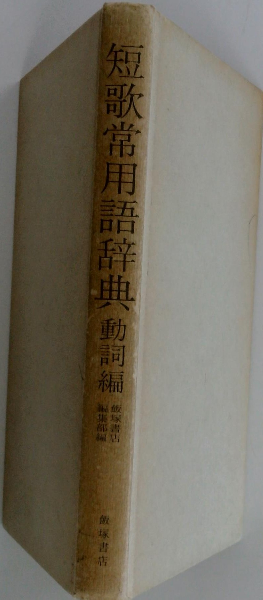 短歌常用語辞典 動詞編
飯塚書店
編集部編
飯塚書店